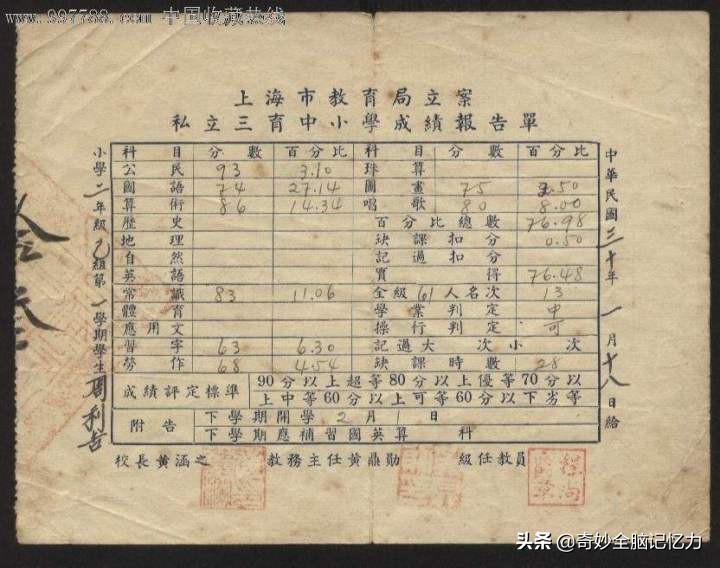 www.997788.com 中国收藏热线
上海市教育局立案
私立三育中小學成績報告單
中華民國三十年一月十八日給
科目 分數 百分比 科目 分數 百分比
公民 93 3.10 珠算
國語 74 27.14 圖畫 75 3.50
算術 86 14.34 唱歌 80 8.00
歷史 百分比總數 76.98
地理 缺課扣分 0.50
自然 記過扣分
英語 實得 76.48
常識 83 11.06 全級61人名次 13
體育 學業判定 中
應用文 操行判定 可
習字 63 6.30 記過大 次小 次
勞作 68 4.54 缺課時數 28
成績評定標準 90分以上超等80分以上優等70分以
上中等60分以上可等60分以下劣等
附告 下學期開學2月1日
下學期應補習國英算 科
小學二年級乙組第一學期學生周利
校長黄涵之 教務主任黄鼎勋 級任教員
头条 @奇妙全脑记忆力